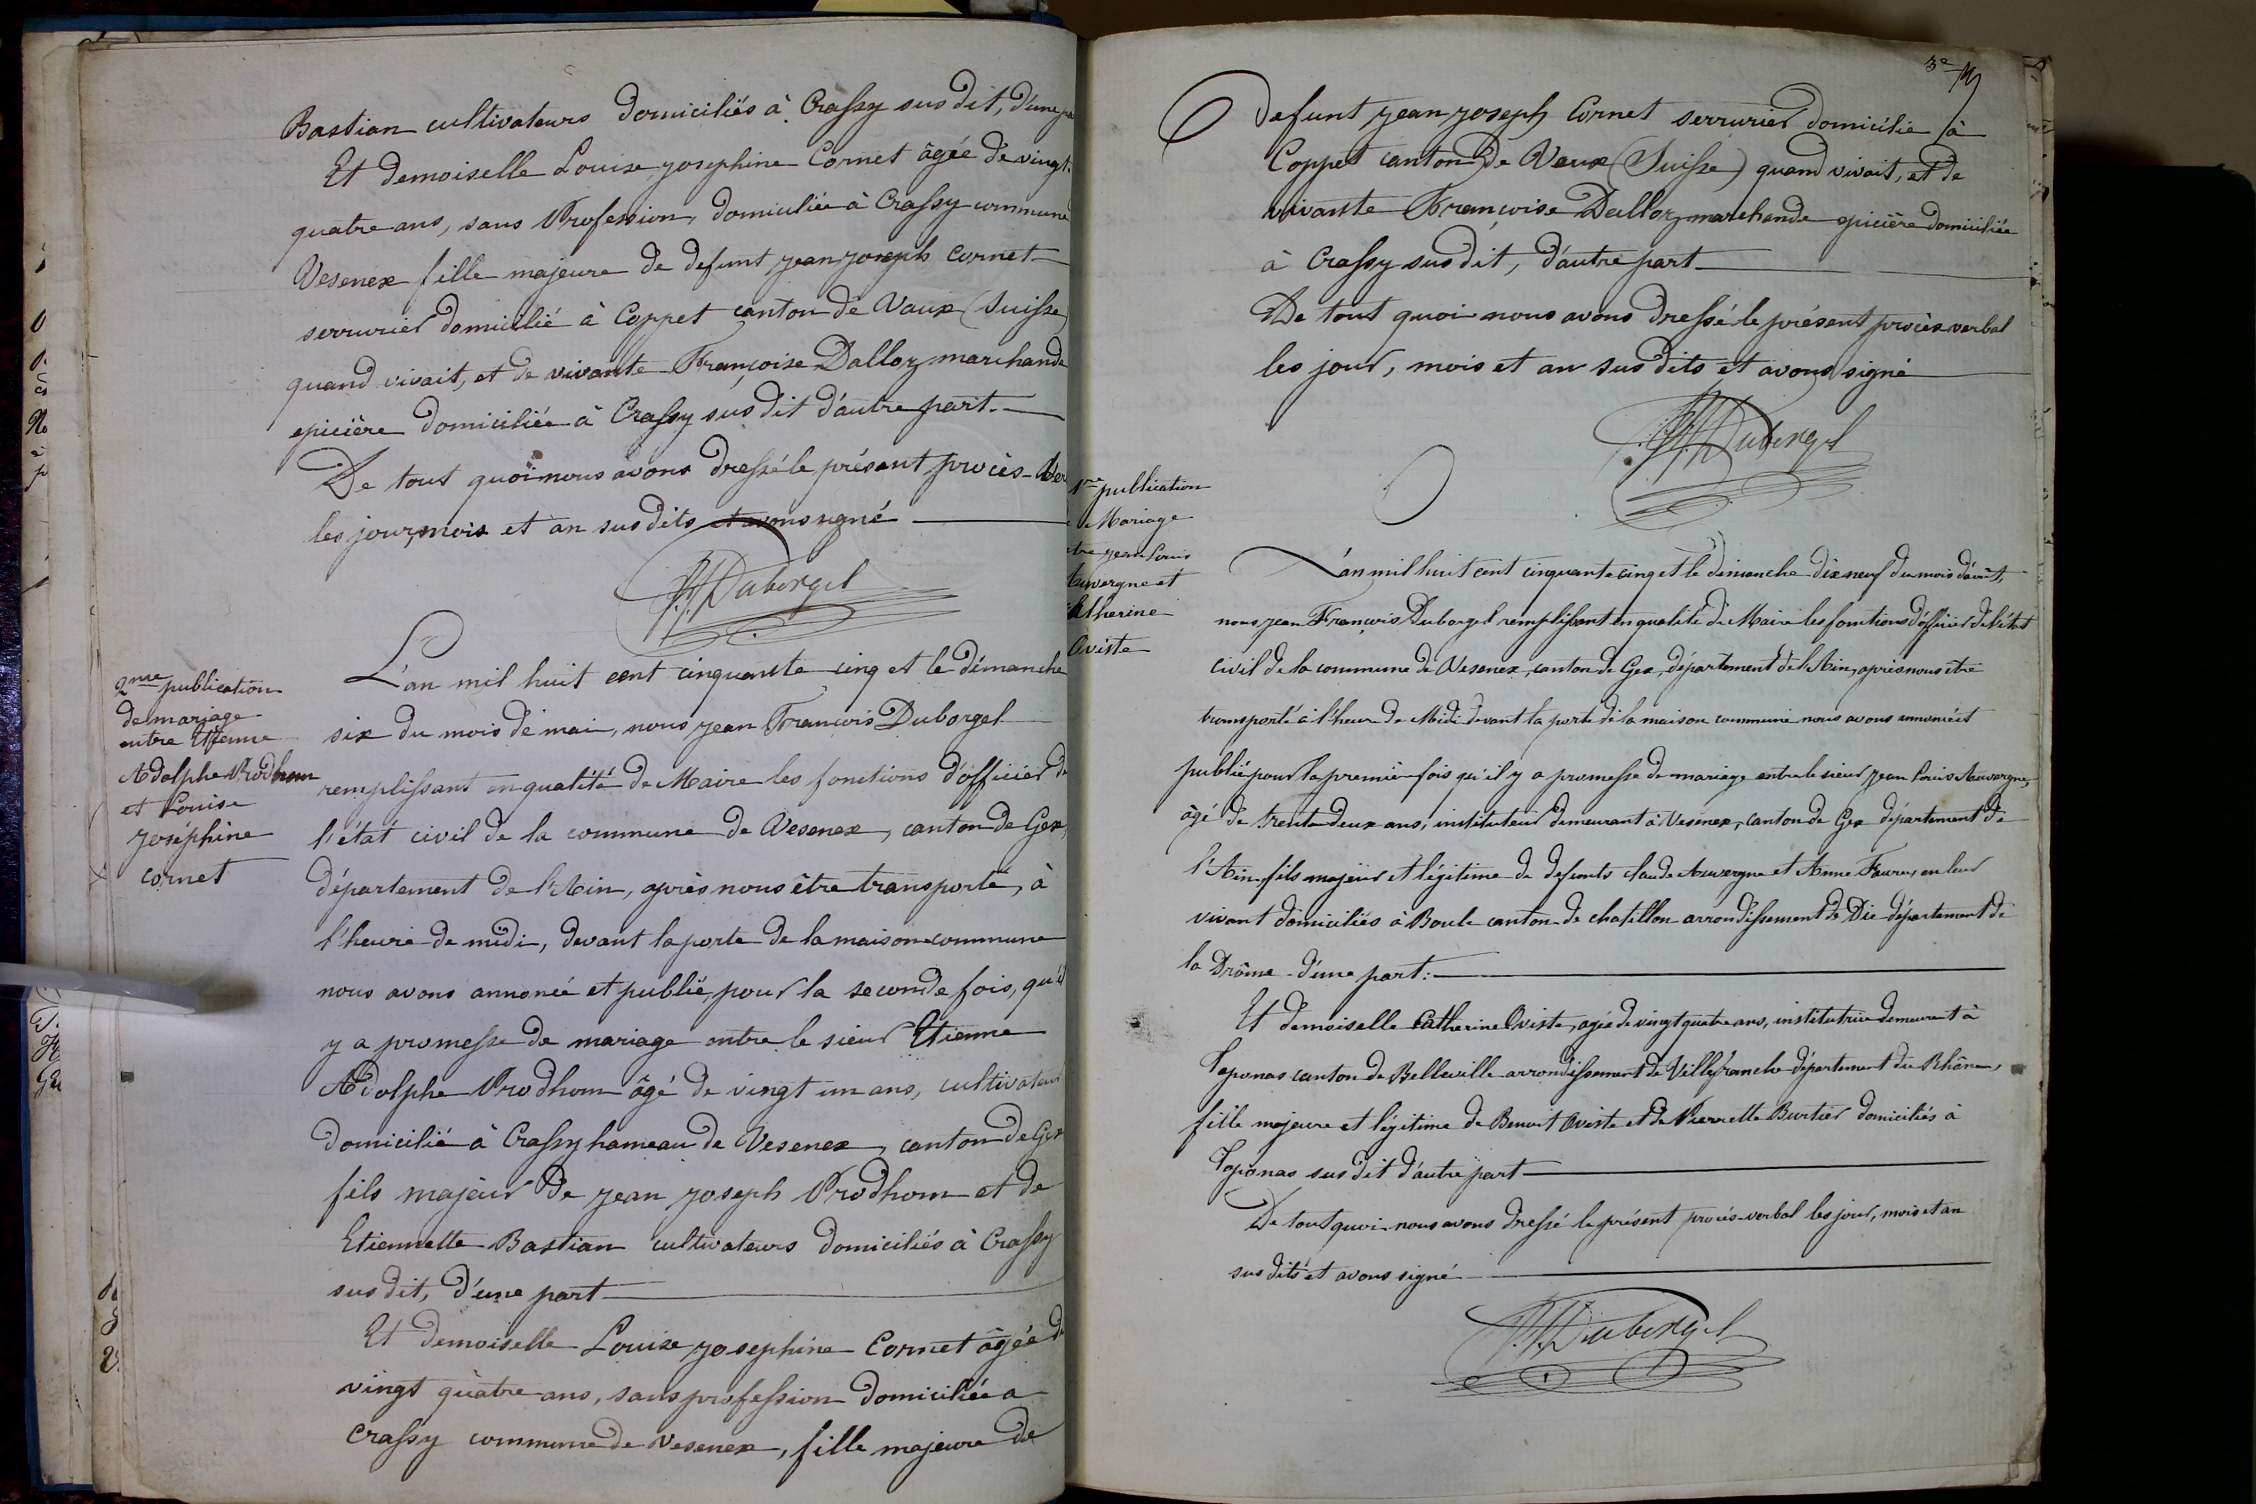 Bastian cultivateurs domiciliés à Crassy sus dit, d'une pa
Et demoiselle Louise Josephine Cornet âgée de vingt
quatre ans, sans Profession, domiciliée à Crassy commune
Vesenex fille majeure de defunt Jean Joseph Cornet
serrurier domicilié à Coppet canton de Vaux (Suisse)
quand vivait, et de vivante Françoise Dalloz marchande
epicière domiciliée à Crassy sus dit d'autre part.
De tout quoi nous avons dressé le présent procès-Ver
les jour, mois et an sus dits et avons signé
J. F. Duborgel
2me publication
de mariage
entre Etienne
Adolphe Prodhom
et Louise
Joséphine
cornet
L'an mil huit cent cinquante cinq et le dimanche
six du mois de mai, nous Jean François Duborgel
remplissant en qualité de Maire les fonctions d'officier de
l'état civil de la commune de Vesenex, canton de Gex,
département de l'Ain, après nous être transporté, à
l'heure de midi, devant la porte de la maison commune
nous avons annoncé et publié, pour la seconde fois, qu'il
y a promesse de mariage entre le sieur Etienne
Adolphe Prodhom âgé de vingt un ans, cultivateur
domicilié à Crassy hameau de Vesenex, canton de Gex
fils majeur de Jean Joseph Prodhom et de
Etiennette Bastian cultivateurs domiciliés à Crassy
sus dit, d'une part
Et demoiselle Louise Josephine Cornet âgée de
vingt quatre ans, sans profession domiciliée a
Crassy commune de Vesenex, fille majeure de
3e
defunt Jean Joseph Cornet serrurier domicilié à
Coppet canton de Vaux (Suisse) quand vivait, et de
vivante Françoise Dalloz marchande epicière domiciliée
à Crassy sus dit, d'autre part
De tout quoi nous avons dressé le présent procès verbal
les jour, mois et an sus dits et avons signé
J. F. Duborgel
1re publication
e Mariage
tre Jean Louis
Auvergne et
Catherine
Oviste
L'an mil huit cent cinquante cinq et le dimanche dix neuf du mois d'août,
nous Jean François Duborgel remplissant en qualité de Maire les fonctions d'officier de l'état
civil de la commune de Vesenex, canton de Gex, département de l'Ain, après nous être
transporté à l'heure de Midi devant la porte de la maison commune nous avons annoncé et
publié pour la première fois qu'il y a promesse de mariage entre le sieur Jean Louis Auvergne,
âgé de trente deux ans, instituteur demeurant à Vesenex, canton de Gex département de
l'Ain, fils majeur et légitime de defunts Claude Auvergne et Anne Faure, en leur
vivant domiciliés à Boule canton de chatillon arrondissement de Die département de
la Drôme d'une part:
Et demoiselle Catherine Oviste, agée de vingt quatre ans, institutrice demeurant à
Taponas canton de Belleville arrondissement de Villefranche département du Rhône,
fille majeure et légitime de Benoit Oviste et de Pierrette Burtier domiciliés à
Taponas sus dit d'autre part
De tout quoi nous avons dressé le présent procès-verbal les jour, mois et an
sus dits et avons signé
J. F. Duborgel